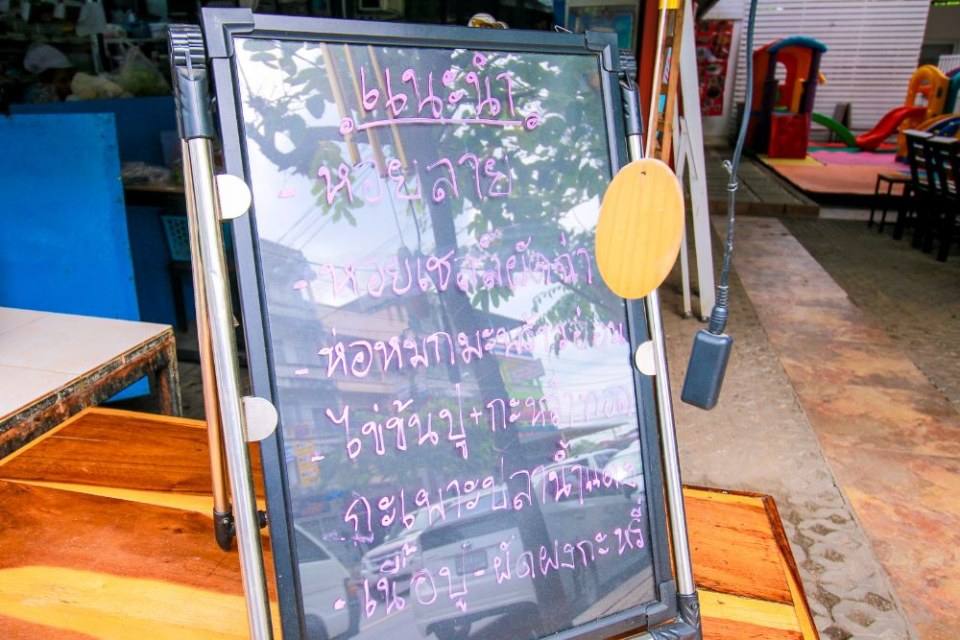 แนะนำ
- หอยลาย
- หอยเชลล์ผัดฉ่า
- ห่อหมกมะพร้าวอ่อน
- ไข่ข้นปู+กะหล่ำทอด
- กะเพาะปลาน้ำแดง
- เนื้อปู-ผัดผงกะหรี่